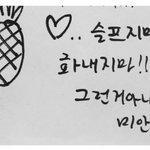 ♡.. 슬프지마
화내지마!!
그런거아니
미안